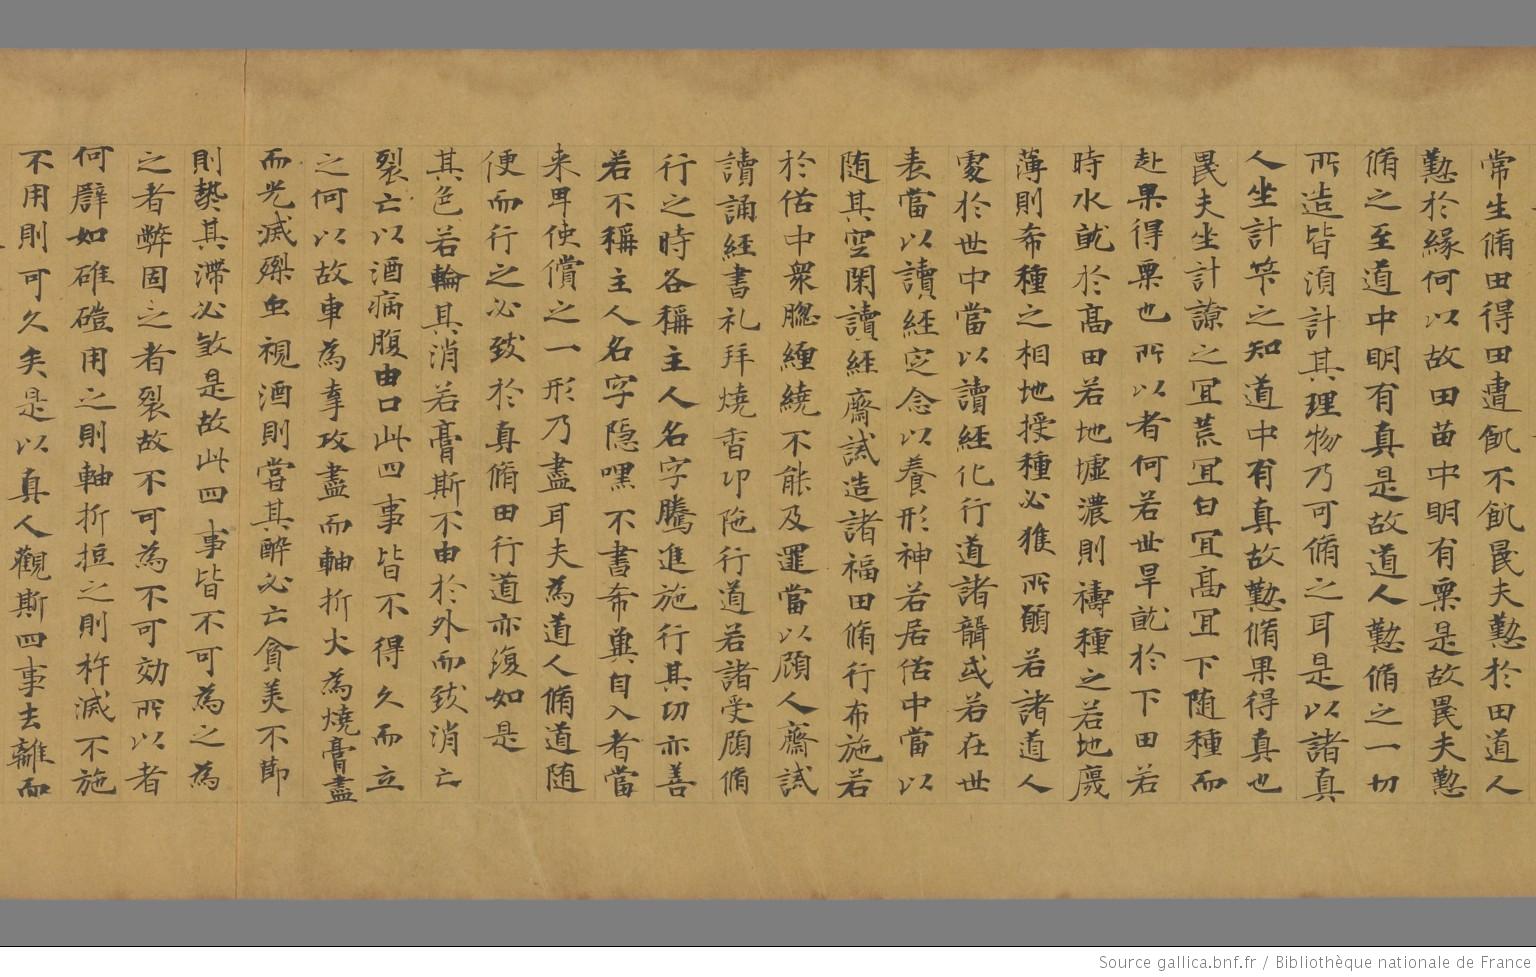 常生脩田得田遭飢不飢甿夫懃於田道人
懃於緣何以故田苗中明有粟是故甿夫懃
脩之至道中明有真是故道人懃脩之一切
所造皆湏計其理物乃可脩之耳是以諸真
人坐計筞之知道中有真故懃脩果得真也
甿夫坐計諒之冝荒冝白冝高冝下随種而
赴果得粟也所以者何若世旱就於下田若
時水就於高田若地墟濃則禱種之若地
薄則希種之相地授種必獲所願若諸道人
處於世中當以讀經化行道諸韻或若在世
表當以讀經定念以養形神若居俗中當以
随其空閑讀經齋試造諸福田脩行布施若
於俗中衆緫纏繞不能及羅當以顧人齋試
讀誦經書礼拜燒香卬施行道若諸受顧脩
行之時各稱主人名字騰進施行其功亦善
若不稱主人名字隠嘿不書希與自入者當
来畀使償之一形乃盡耳夫為道人脩道随
便而行之必致於真脩田行道亦復如是
其色若輪其消若膏斯不由於外而致消亡
裂亡以酒病腹由口此四事皆不得久而立
之何以故車為牽攻盡而軸折火為燒膏盡
而光滅㻞虫視酒則嘗其醉必亡貪美不節
則㙯其滯必斃是故此四事皆不可為之為
之者弊固之者裂故不可為不可効所以者
何譬如碓磑用之則軸折搄之則杵滅不施
不用則可久矣是以真人觀斯四事去離而